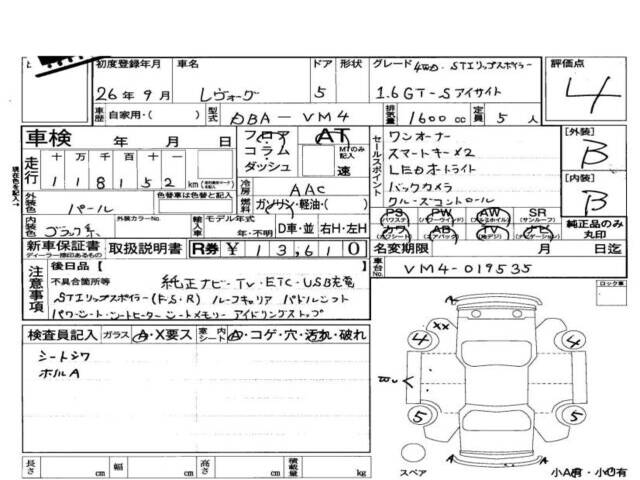 初度登録年月 車名 ドア 形状 グレード 4WD・STIリップスポイラー 評価点
26年9月 レヴォーグ 5 1.6GT-Sアイサイト 4
車歴 自家用・( ) 型式 DBA-VM4 排気量 1600cc 定員 5人
車検 年 月 日 フロア コラム ダッシュ AT MTのみ記入 速
セールスポイント
ワンオーナー
スマートキー×2
LEDオートライト
バックカメラ
クルーズコントロール
[外装] B
[内装] B
走行 十 万 千 百 十 一
118152 km
冷房 AAC
外装色 パール 色替車は色替前の色 燃料 ガソリン・軽油・( )
内装色 ブラック系 外装カラーNo. 輸入車 モデル年式 年・不明 D車・並 右H・左H
PS (パワステ) PW (パワーウインド) AW (アルミホイル) SR (サンルーフ)
カワ (カワシート) AB (エアバック) TV (地デジ) ナビ (ナビゲーション)
純正品のみ丸印
新車保証書 ディーラー捺印あるもの 取扱説明書 R券 ¥13,610 名変期限 月 日迄
注意事項
後日品【 】
車台No. VM4-019535
不具合箇所等 純正ナビ・TV・ETC・USB充電
STIリップスポイラー(F・S・R) ルーフキャリア パドルシフト
パワーシート・シートヒーター シートメモリー アイドリングストップ
ロック車
検査員記入 ガラス A・X要ス 室内シート A・コゲ・穴・汚れ・破れ
シートシワ
ホイルA
A
XX
4 4
5 5
A A
スペア 小A有・小U有
長さ cm 幅 cm 高さ cm 積載量 kg